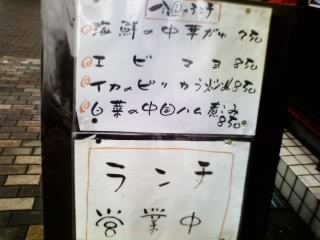 今週のランチ
海鮮の中華がゆ 750
エビマヨ 850
イカのピリカラ炒め 850
白菜の中国ハム煮込
850
ランチ
営業中